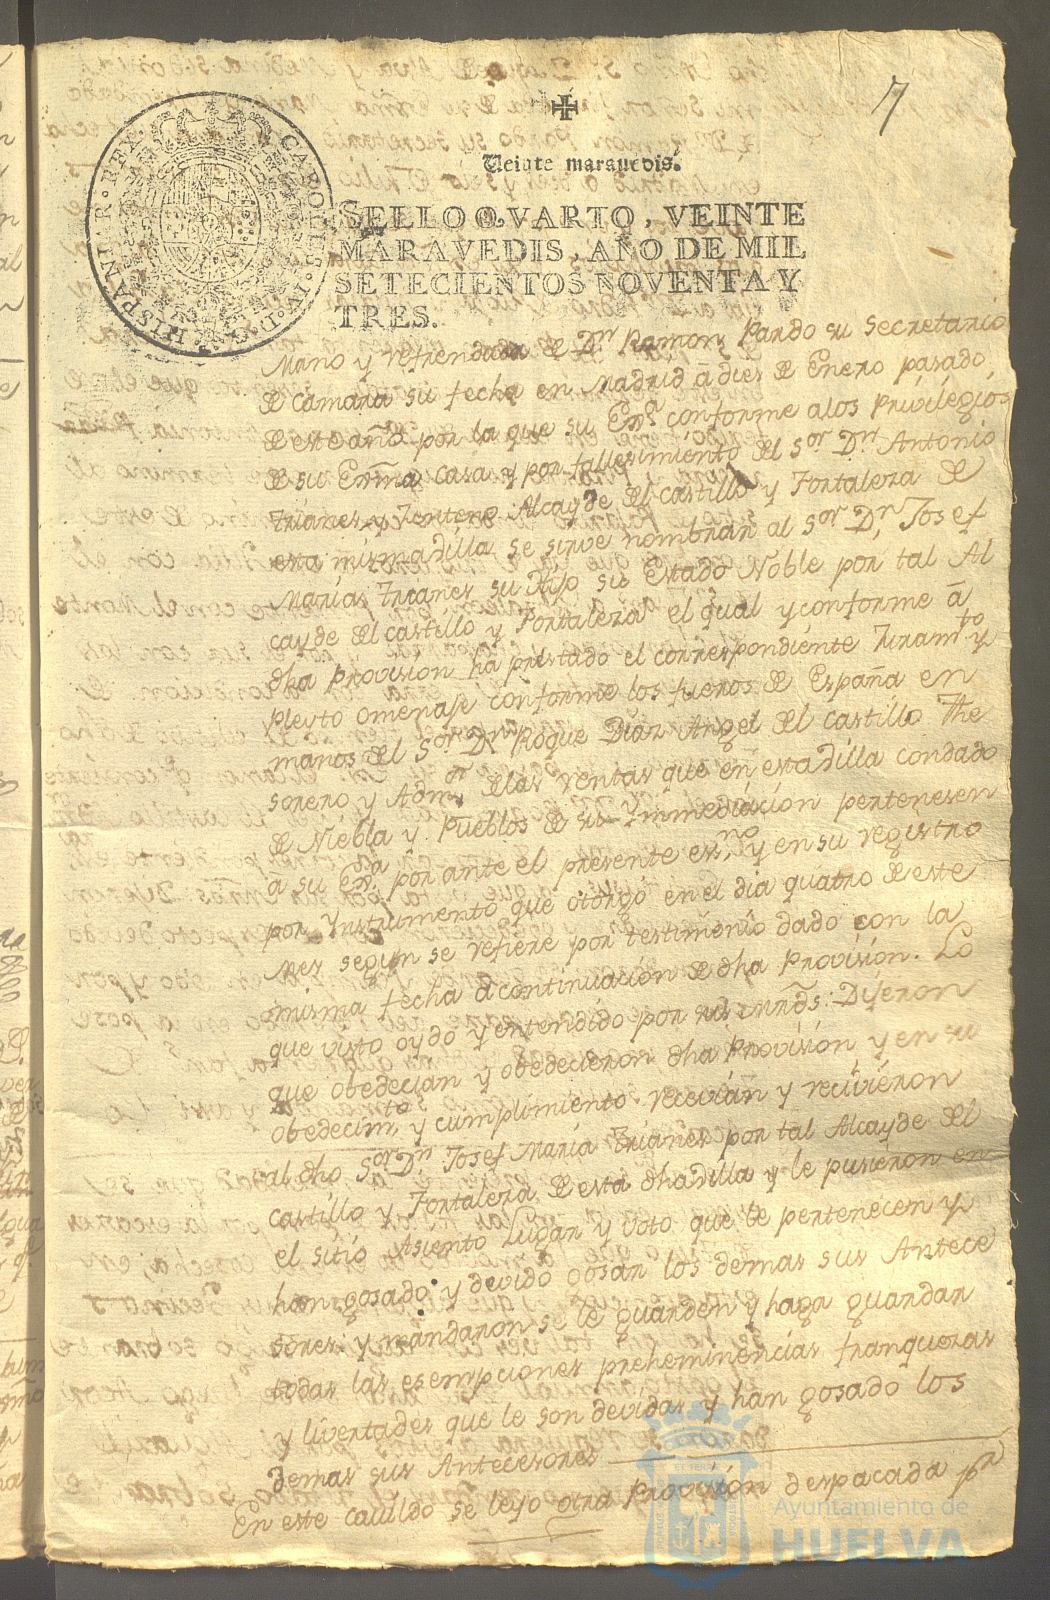 7
Veinte maravedis.
SELLO QVARTO, VEINTE
MARAVEDIS, AÑO DE MIL
SETECIENTOS NOVENTA Y
TRES.
CAROLUS IV D G HISPANIAR REX
Mano y refrendada de Dn Ramon Pardo su Secretario
de camara su fecha en Madrid â dies de Enero pasado
de este año por la que su Exa conforme alos Privilegios
de su Exma casa y por fallesimiento del Sor Dn Antonio
Trianes y Alcayde del castillo y Fortaleza de
esta misma villa se sirve nombrar al Sor Dn Josef
Maria Trianes su Hijo su Estado Noble por tal Al
cayde del castillo y Fortaleza el qual y conforme â
dha Provision ha prestado el correspondiente Juramto y
Pleyto omenaje conforme los fueros de España en
manos del Sor Dn Roque Diaz Angel del castillo The
sorero y Admor delas Rentas que en esta villa condado
de Niebla y Pueblos de su Ynmediacion pertenesen
â su Exa por ante el presente esno y en su registro
por Ynstrumento que otorgó en el dia quatro de este
mes segun se refiere por testimonio dado con la
misma fecha â continuacion de dha Provision. Lo
que visto oydo y entendido por sus mrds: Dijeron
que obedecian y obedecieron dha Provision y en su
obedecimto y cumplimiento recevian y recivieron
al dho Sor Dn Josef Maria Trianes por tal Alcayde del
castillo y Fortaleza de esta dha villa y le pusieron en
el sitio Asiento Lugar y Voto que le pertenecen y
han gosado y devido gosar los demas sus Antece
sores: y mandaron se le guarden y haga guardar
todas las esempciones preheminencias franquezas
y livertades que le son devidas y han gosado los
demas sus Antecesores
En este cavildo se leyo otra Provision despacada pr
Ayuntamiento de
HUELVA